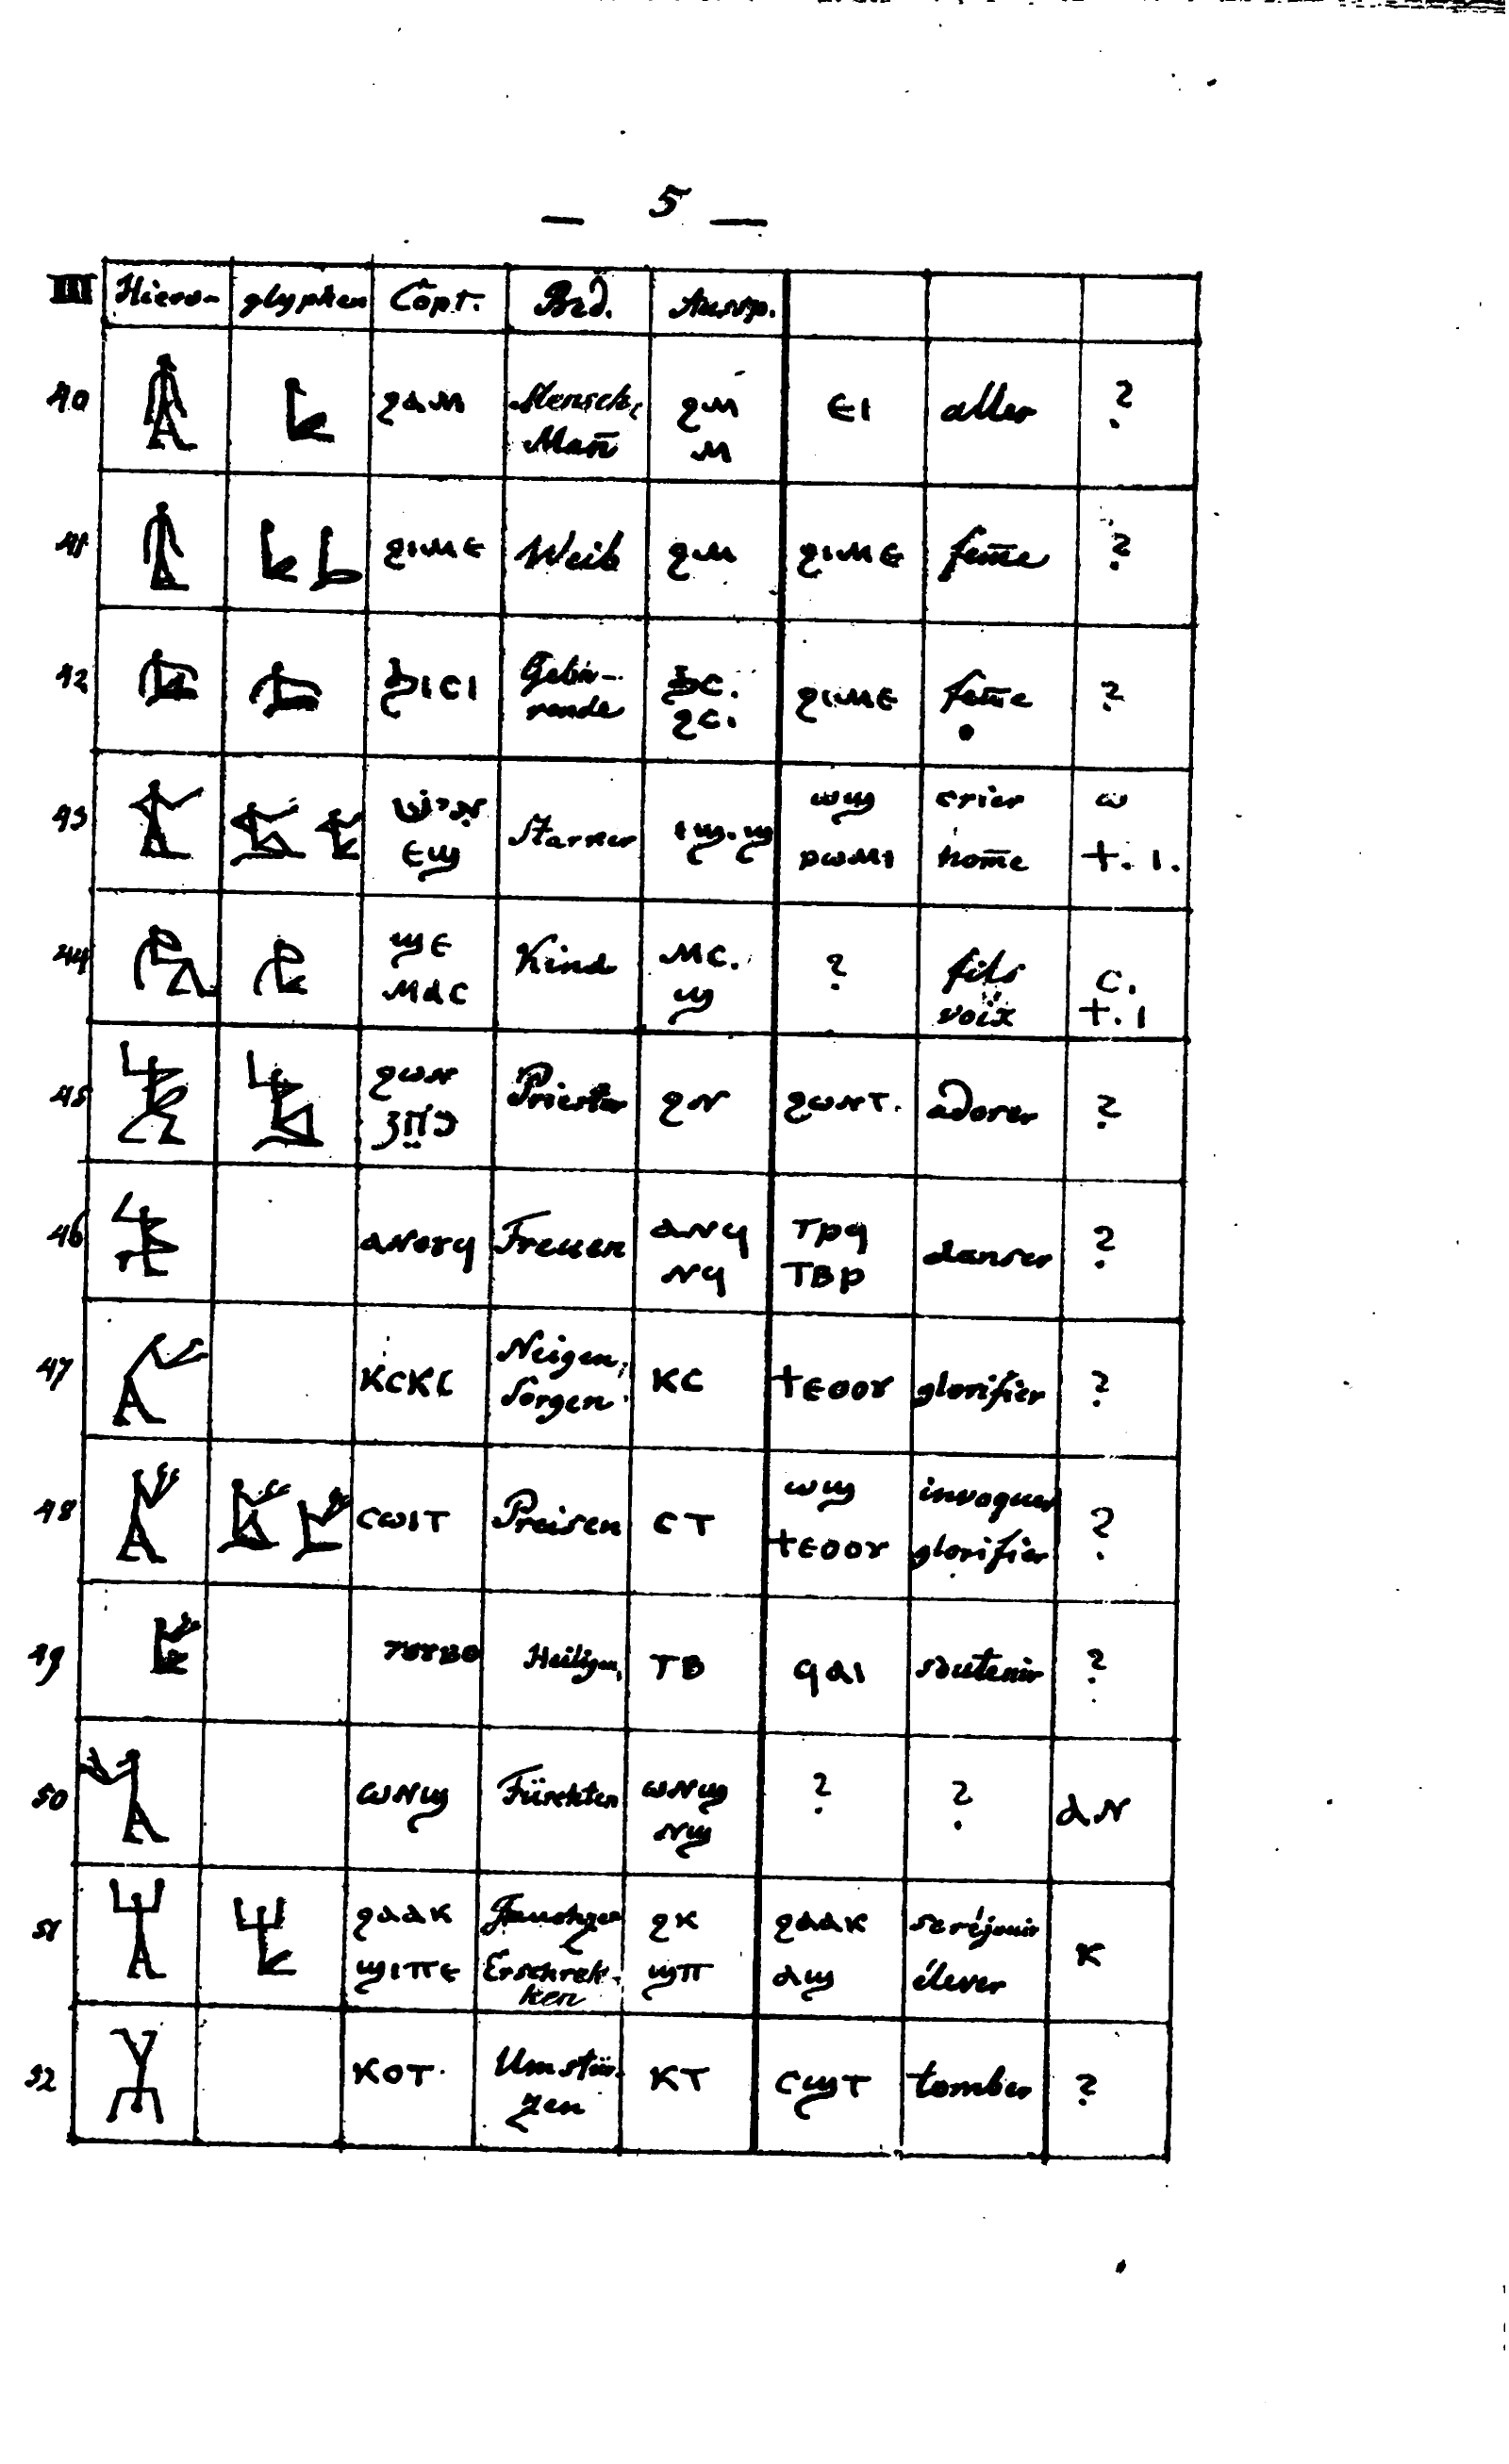 — 5 —
III Hiero- glyphen Copt. Bed. Aussp.
40 ϩⲁⲙ Mensch, Mañ ϩⲙ ⲙ ⲉⲓ aller ?
41 ϩⲓⲙⲉ Weib ϩⲙ ϩⲓⲙⲉ fem̄e ?
42 ϦⲓⲤⲓ Gebä- rende Ϧⲥ. ϩⲥ. ϩⲓⲙⲉ fem̄e ?
43 אִישׁ ⲉϣ Starker ⲓϣ. ϣ ⲱϣ ⲣⲱⲙⲓ crier hom̄e ⲱ ϯ. ⲓ.
44 ϣⲉ ⲙⲁⲥ Kind ⲙⲥ. ϣ ? fils voix ⲥ. ϯ. ⲓ
45 ϩⲱⲛ כהן Priester ϩⲛ ϩⲱⲛⲧ. adorer ?
46 ⲁⲛⲟⲩϥ Freuen ⲁⲛϥ ⲛϥ ⲧⲣϥ ⲧⲃⲣ danser ?
47 ⲕⲥⲕⲥ Neigen, Sorgen ⲕⲥ ϯⲉⲟⲟⲩ glorifier ?
48 ⲥⲱⲓⲧ Preisen ⲥⲧ ⲱϣ ϯⲉⲟⲟⲩ invoquer glorifier ?
49 ⲧⲟⲩⲃⲟ Heiligen, ⲧⲃ ϥⲁⲓ soutenir ?
50 ⲱⲛϣ Fürchten ⲱⲛϣ ⲛϣ ? ? ⲁⲛ
51 ϩⲁⲁⲕ ϣⲓⲡⲉ Jauchzen Erschrek- ken ϩⲕ ϣⲡ ϩⲁⲁⲕ ⲁϣ se réjouir élever ⲕ
52 ⲕⲟⲧ. Umstür- zen ⲕⲧ ⲥϣⲧ tomber ?